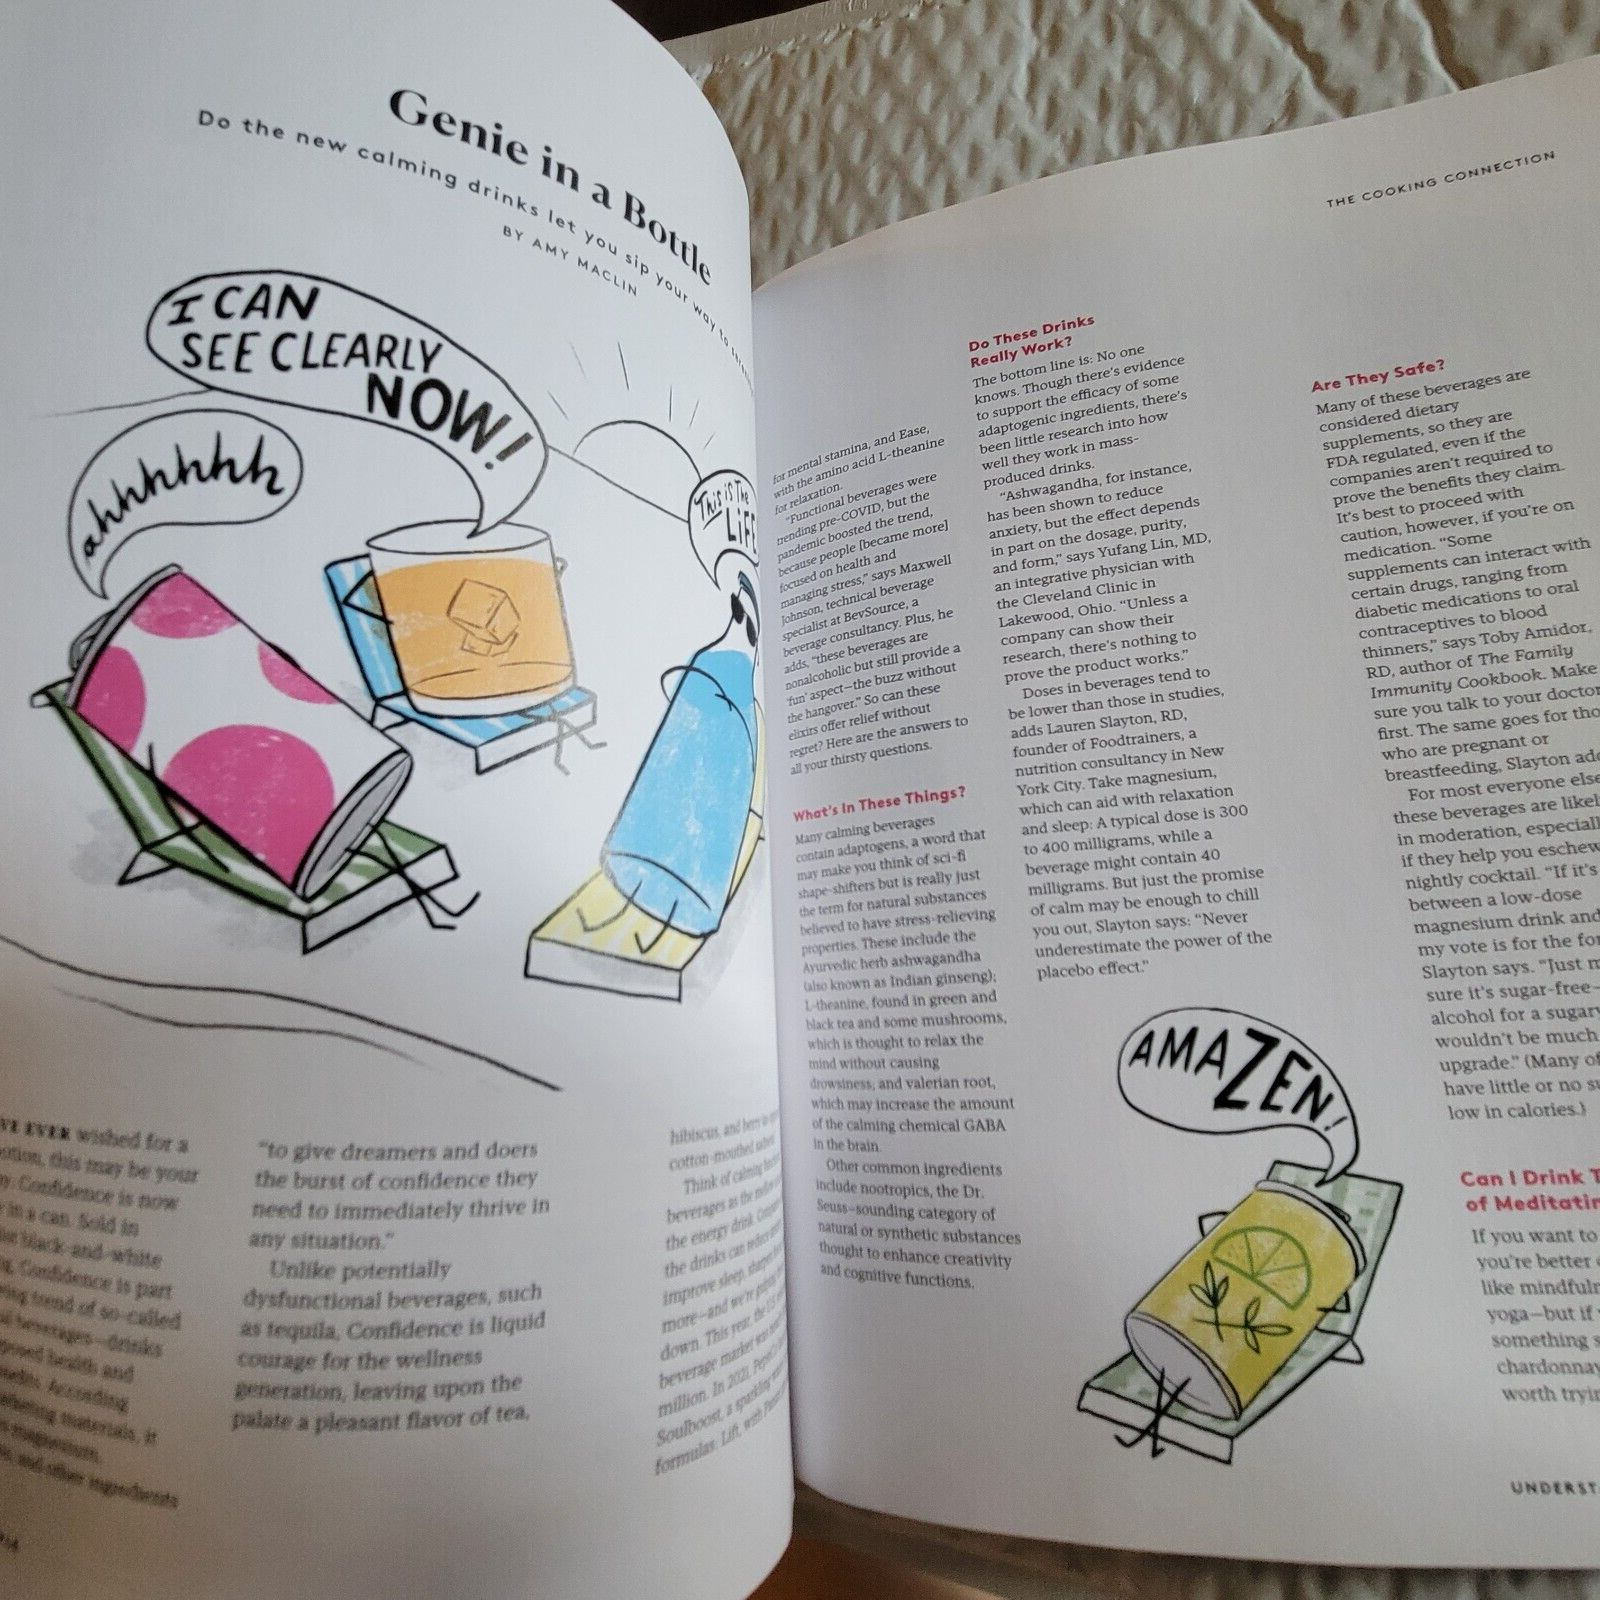 Genie in a Bottle
Do the new calming drinks let you sip your way to
BY AMY MACLIN
I CAN
SEE CLEARLY
NOW!
ahhhhhh
This is The
LiFE
EVER wished for a
this may be your
Confidence is now
in a can. Sold in
black-and-white
Confidence is part
trend of so-called
beverages—drinks
health and
According
materials, it
magnesium,
and other ingredients
“to give dreamers and doers
the burst of confidence they
need to immediately thrive in
any situation.”
Unlike potentially
dysfunctional beverages, such
as tequila, Confidence is liquid
courage for the wellness
generation, leaving upon the
palate a pleasant flavor of tea,
hibiscus, and berry
cotton-mouthed
Think of calming
beverages as the
the energy drink.
the drinks can
improve sleep,
more—and we're
down. This year, the
beverage market was
million. In 2021,
Soulboost, a sparkling
formulas: Lift, with
THE COOKING CONNECTION
for mental stamina, and Ease,
with the amino acid L-theanine
for relaxation.
“Functional beverages were
trending pre-COVID, but the
pandemic boosted the trend,
because people [became more]
focused on health and
managing stress,” says Maxwell
Johnson, technical beverage
specialist at BevSource, a
beverage consultancy. Plus, he
adds, “these beverages are
nonalcoholic but still provide a
‘fun’ aspect—the buzz without
the hangover.” So can these
elixirs offer relief without
regret? Here are the answers to
all your thirsty questions.
What's In These Things?
Many calming beverages
contain adaptogens, a word that
may make you think of sci-fi
shape-shifters but is really just
the term for natural substances
believed to have stress-relieving
properties. These include the
Ayurvedic herb ashwagandha
(also known as Indian ginseng);
L-theanine, found in green and
black tea and some mushrooms,
which is thought to relax the
mind without causing
drowsiness; and valerian root,
which may increase the amount
of the calming chemical GABA
in the brain.
Other common ingredients
include nootropics, the Dr.
Seuss–sounding category of
natural or synthetic substances
thought to enhance creativity
and cognitive functions.
Do These Drinks
Really Work?
The bottom line is: No one
knows. Though there's evidence
to support the efficacy of some
adaptogenic ingredients, there's
been little research into how
well they work in mass-
produced drinks.
“Ashwagandha, for instance,
has been shown to reduce
anxiety, but the effect depends
in part on the dosage, purity,
and form,” says Yufang Lin, MD,
an integrative physician with
the Cleveland Clinic in
Lakewood, Ohio. “Unless a
company can show their
research, there's nothing to
prove the product works.”
Doses in beverages tend to
be lower than those in studies,
adds Lauren Slayton, RD,
founder of Foodtrainers, a
nutrition consultancy in New
York City. Take magnesium,
which can aid with relaxation
and sleep: A typical dose is 300
to 400 milligrams, while a
beverage might contain 40
milligrams. But just the promise
of calm may be enough to chill
you out, Slayton says: “Never
underestimate the power of the
placebo effect.”
AMAZEN!
Are They Safe?
Many of these beverages are
considered dietary
supplements, so they are
FDA regulated, even if the
companies aren't required to
prove the benefits they claim.
It's best to proceed with
caution, however, if you're on
medication. “Some
supplements can interact with
certain drugs, ranging from
diabetic medications to oral
contraceptives to blood
thinners,” says Toby Amidor,
RD, author of The Family
Immunity Cookbook. Make
sure you talk to your doctor
first. The same goes for
who are pregnant or
breastfeeding, Slayton
For most everyone else
these beverages are
in moderation, especially
if they help you eschew
nightly cocktail. “If it's
between a low-dose
magnesium drink and
my vote is for the
Slayton says. “Just
sure it's sugar-free—
alcohol for a sugary
wouldn't be much
upgrade.” (Many of
have little or no
low in calories.)
Can I Drink
of Meditating
If you want to
you're better
like
yoga—but if
something
chardonnay
worth